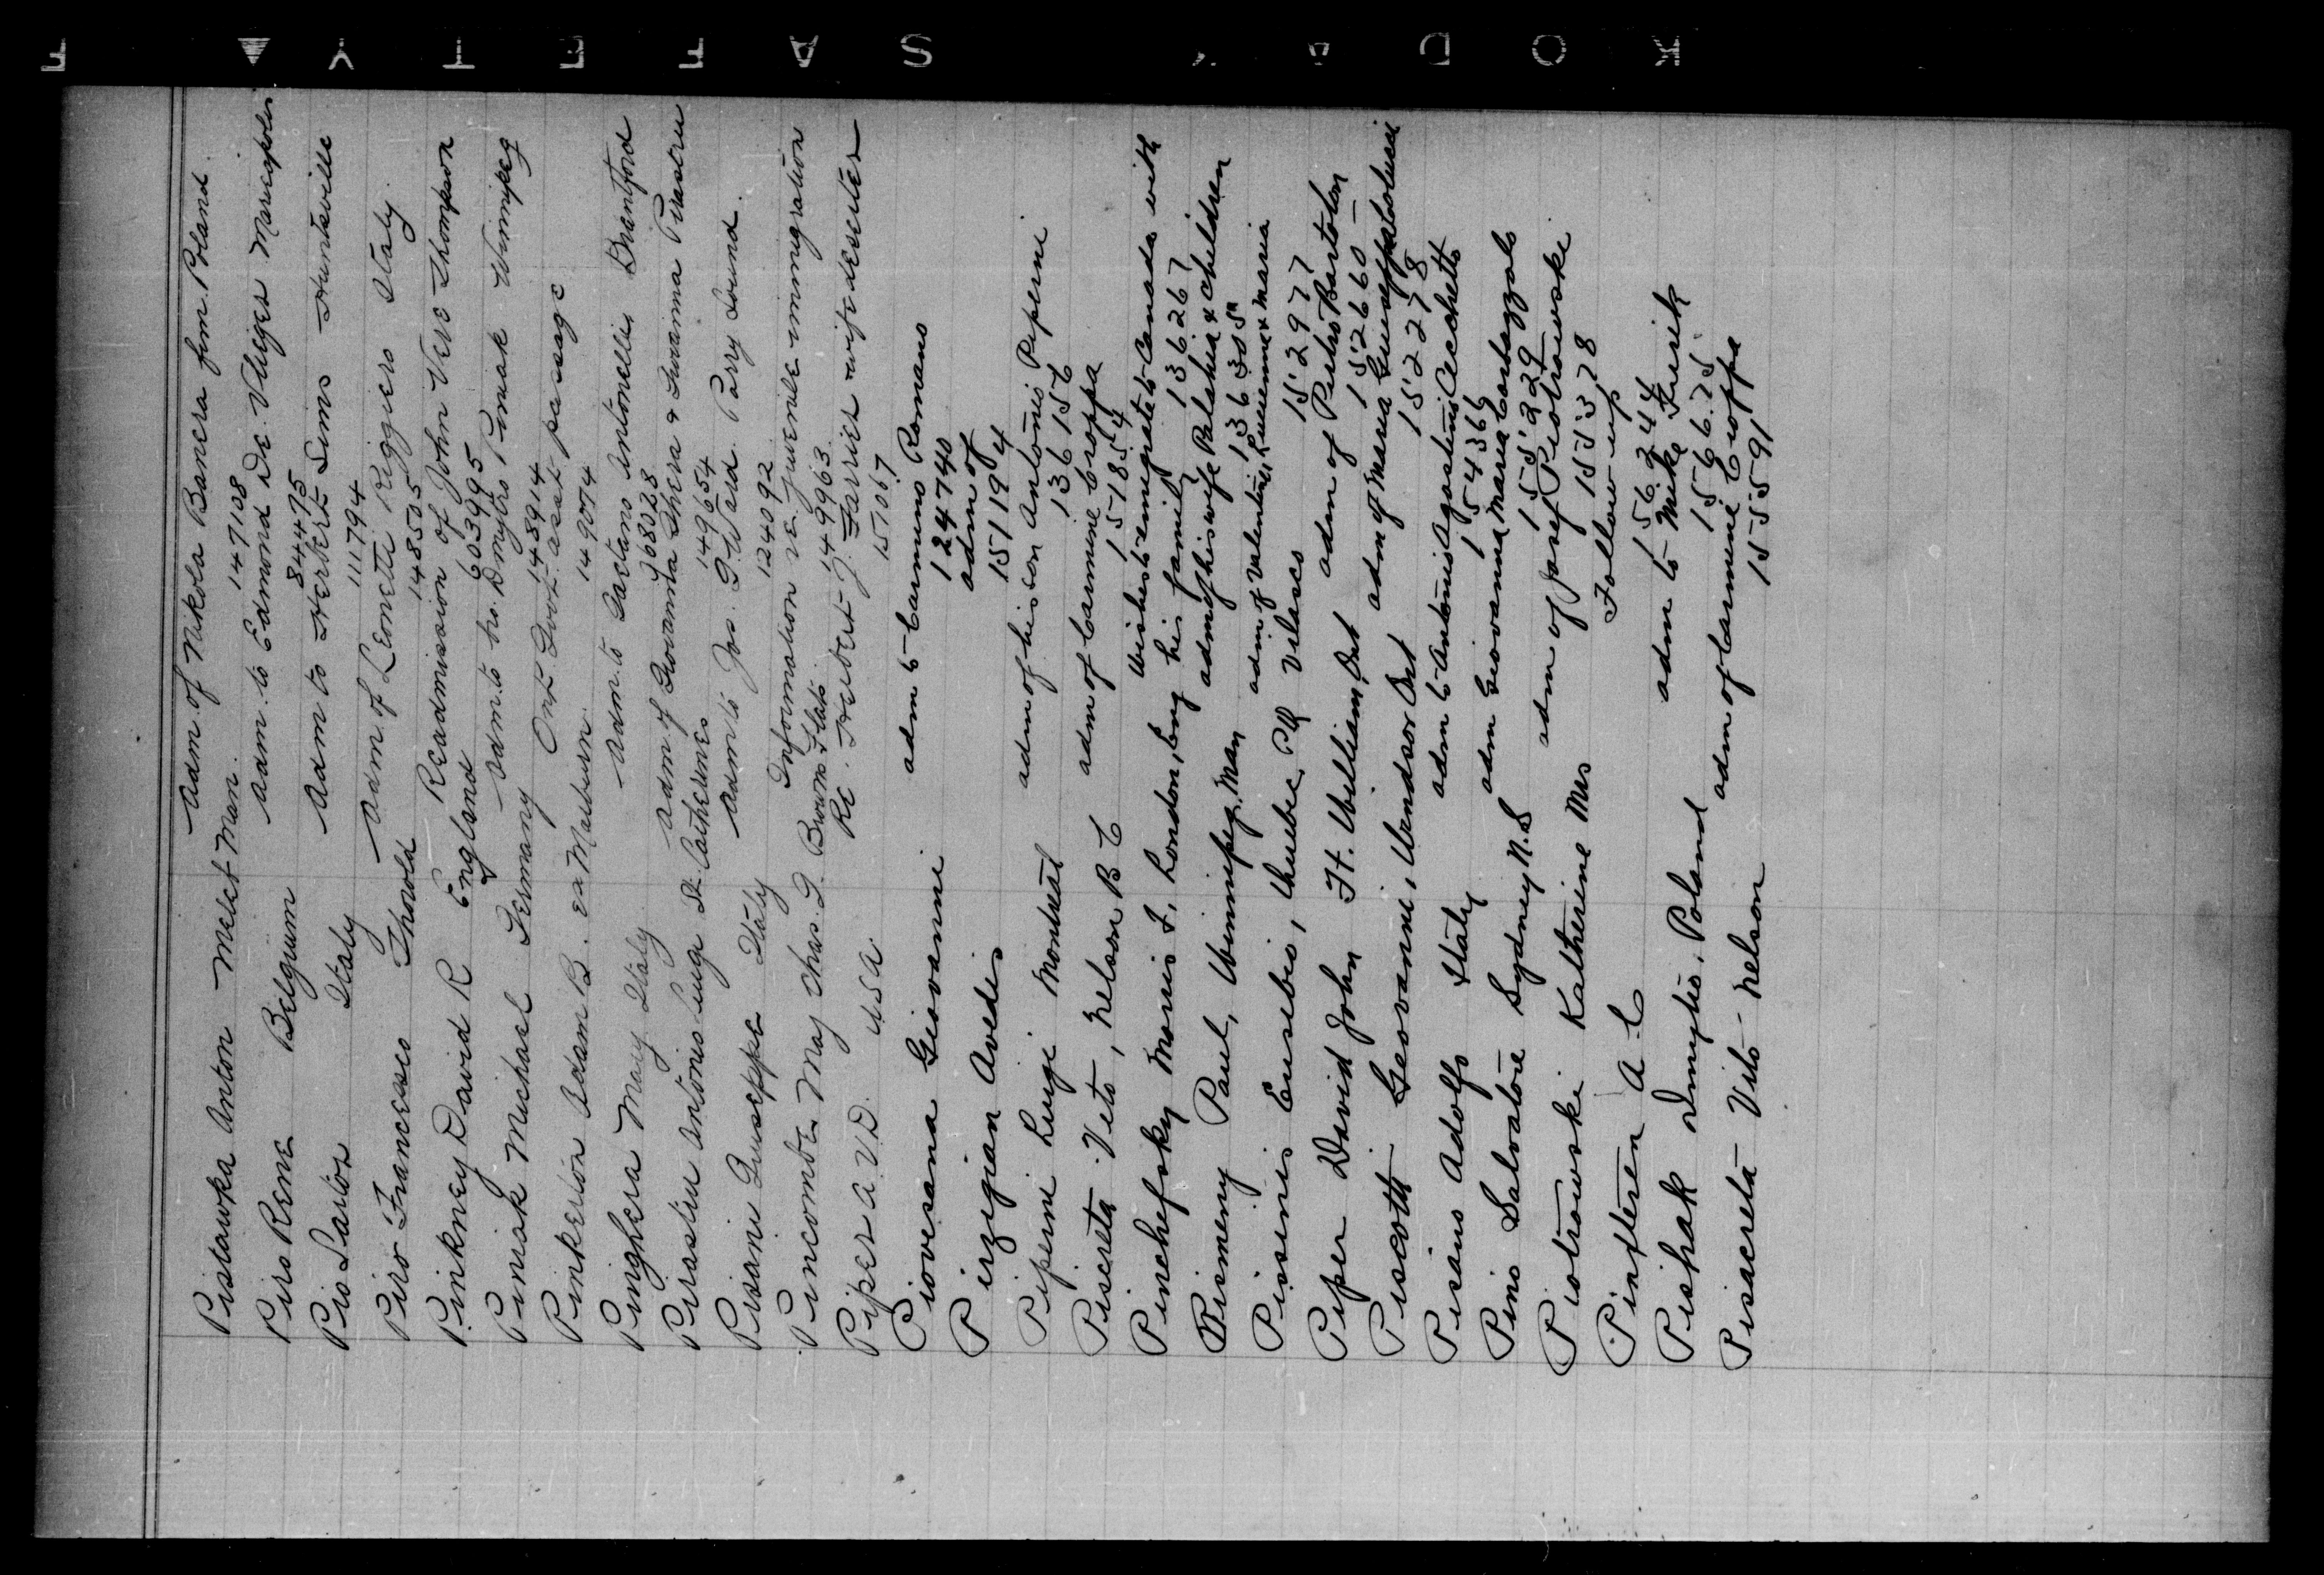 KODAK SAFETY F
Pistawka Anton Meleb Man. Adm. of Nikola Banera from Poland.
147108
Piro Rene Belgium Adm. to Edmond De Vliger Mariapolis
844475
Pio Sartor Italy Adm to Herbert Sims Huntsville
111794
Piro Francesco Thorold Adm of Leonetti Riggiero Italy
148505
Pinkney David R England Readmission of John Vere Thompson
603995
Piniak Michael Germany Adm. to bro. Dmytro Piniak Winnipeg
148914
Pinkerton Adam B. ex Mauburn. Ont Govt. asst passage
149074
Pinghera Mary Italy Adm. to Gaetano Antonellis Brantford
968028
Pirastru Antonio Luigi St. Catherines Adm of Giovanna Thera & Giovanna Pirastru
149654
Pisani Guiseppe Italy Adm to Jos. G Ward. Parry Sound.
124092
Pincombe May Chas. G. Brown Stato Information re juvenile immigration
149963
Piper A.V.D. U.S.A. Re. Herbert J. Farrier wife deserter
151067
Piovesana Giovanni adm to Carmino Romano
124740
Pirzigian Avedis adm of
151194
Piperni Luigi Montreal adm of his son Antonio Piperni
136156
Piscreta Veto, Nelson B C adm of Carmine Croppa
151854
Pinchefsky Morris F, London, Eng Wishes to emigrate to Canada with his family
136267
Pismeny Paul, Winnipeg, Man adm of his wife Palahia & children
136305
Pissinis Eusebio, Quebec, PQ adm of Valentino, Luvienna & Maria Velasco
152977
Piper David John Ft. William, Ont adm of Pietro Bartolon
152660
Piscotti Geovanni, Windsor Ont adm of Maria Guiseppa Palolucci
152278
Pisano Adolfo Italy adm to Antonio Agostino Cecchetto
154366
Pino Salvatore Sydney N.S adm Geovanna Maria Cortazzolo
155229
Piotrowski Katherine Mrs adm of Josef Piotrowski
155378
Pinfteren A C Follow-up
156244
Pishak Dmytro, Poland adm to Mike Furik
156675
Pisacreta Vito - Nelson adm of Carmine Cioppa
155591